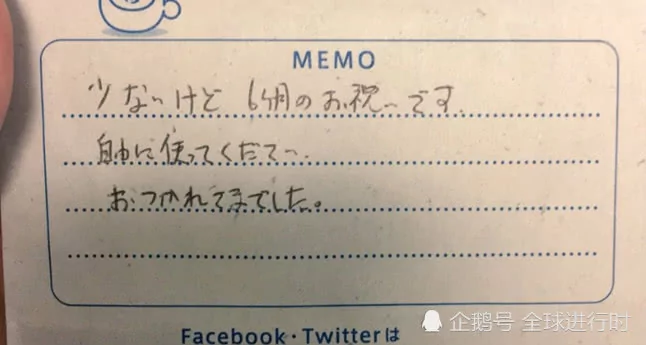 MEMO
少ないけど 6ヶ月のお祝いです.
自由に使ってください.
おつかれさまでした。
Facebook・Twitterは
企鹅号 全球进行时